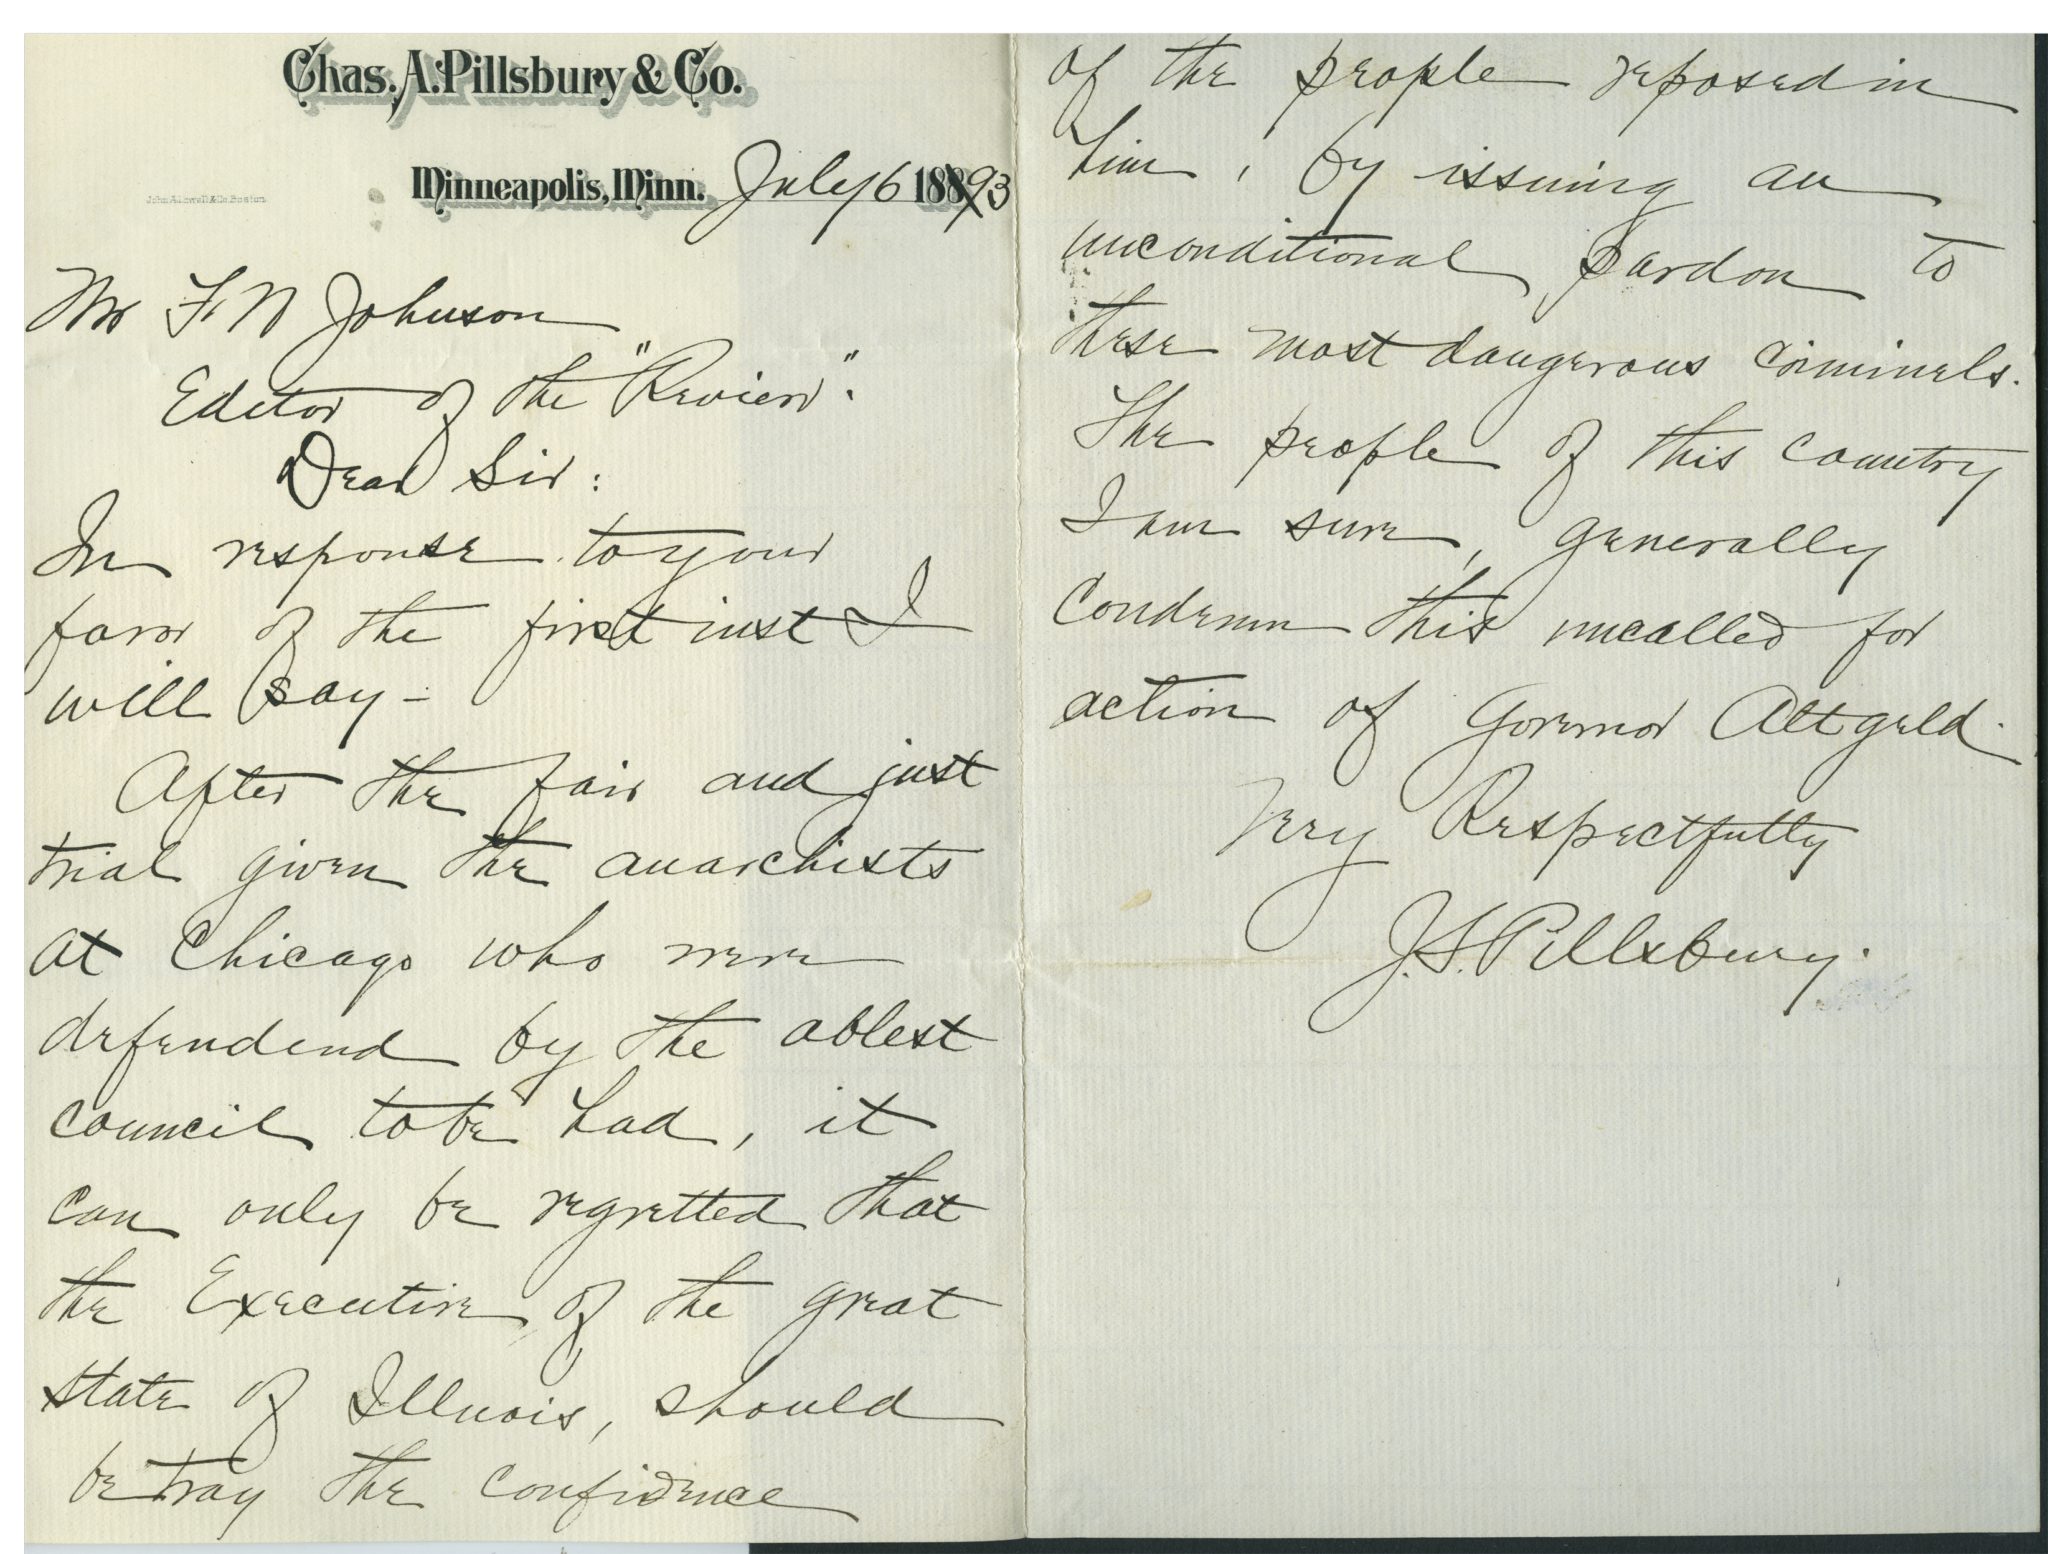 Chas. A. Pillsbury & Co.
Minneapolis, Minn. July 6 18893
John A. Lowell & Co. Boston
Mr F. N Johnson
Editor of the "Review".
Dear Sir:
In response to your
favor of the first inst I
will say –
After the fair and just
trial given the anarchists
at Chicago who were
defendend by the ablest
council to be had, it
can only be regretted that
the Executive of the great
state of Illinois, should
betray the confidence
of the people reposed in
him, by issuing an
unconditional pardon to
these most dangerous criminels.
The people of this country
I am sure, generally
condemn this uncalled for
action of Governor Altgeld.
Very Respectfully
J. S. Pillsbury.